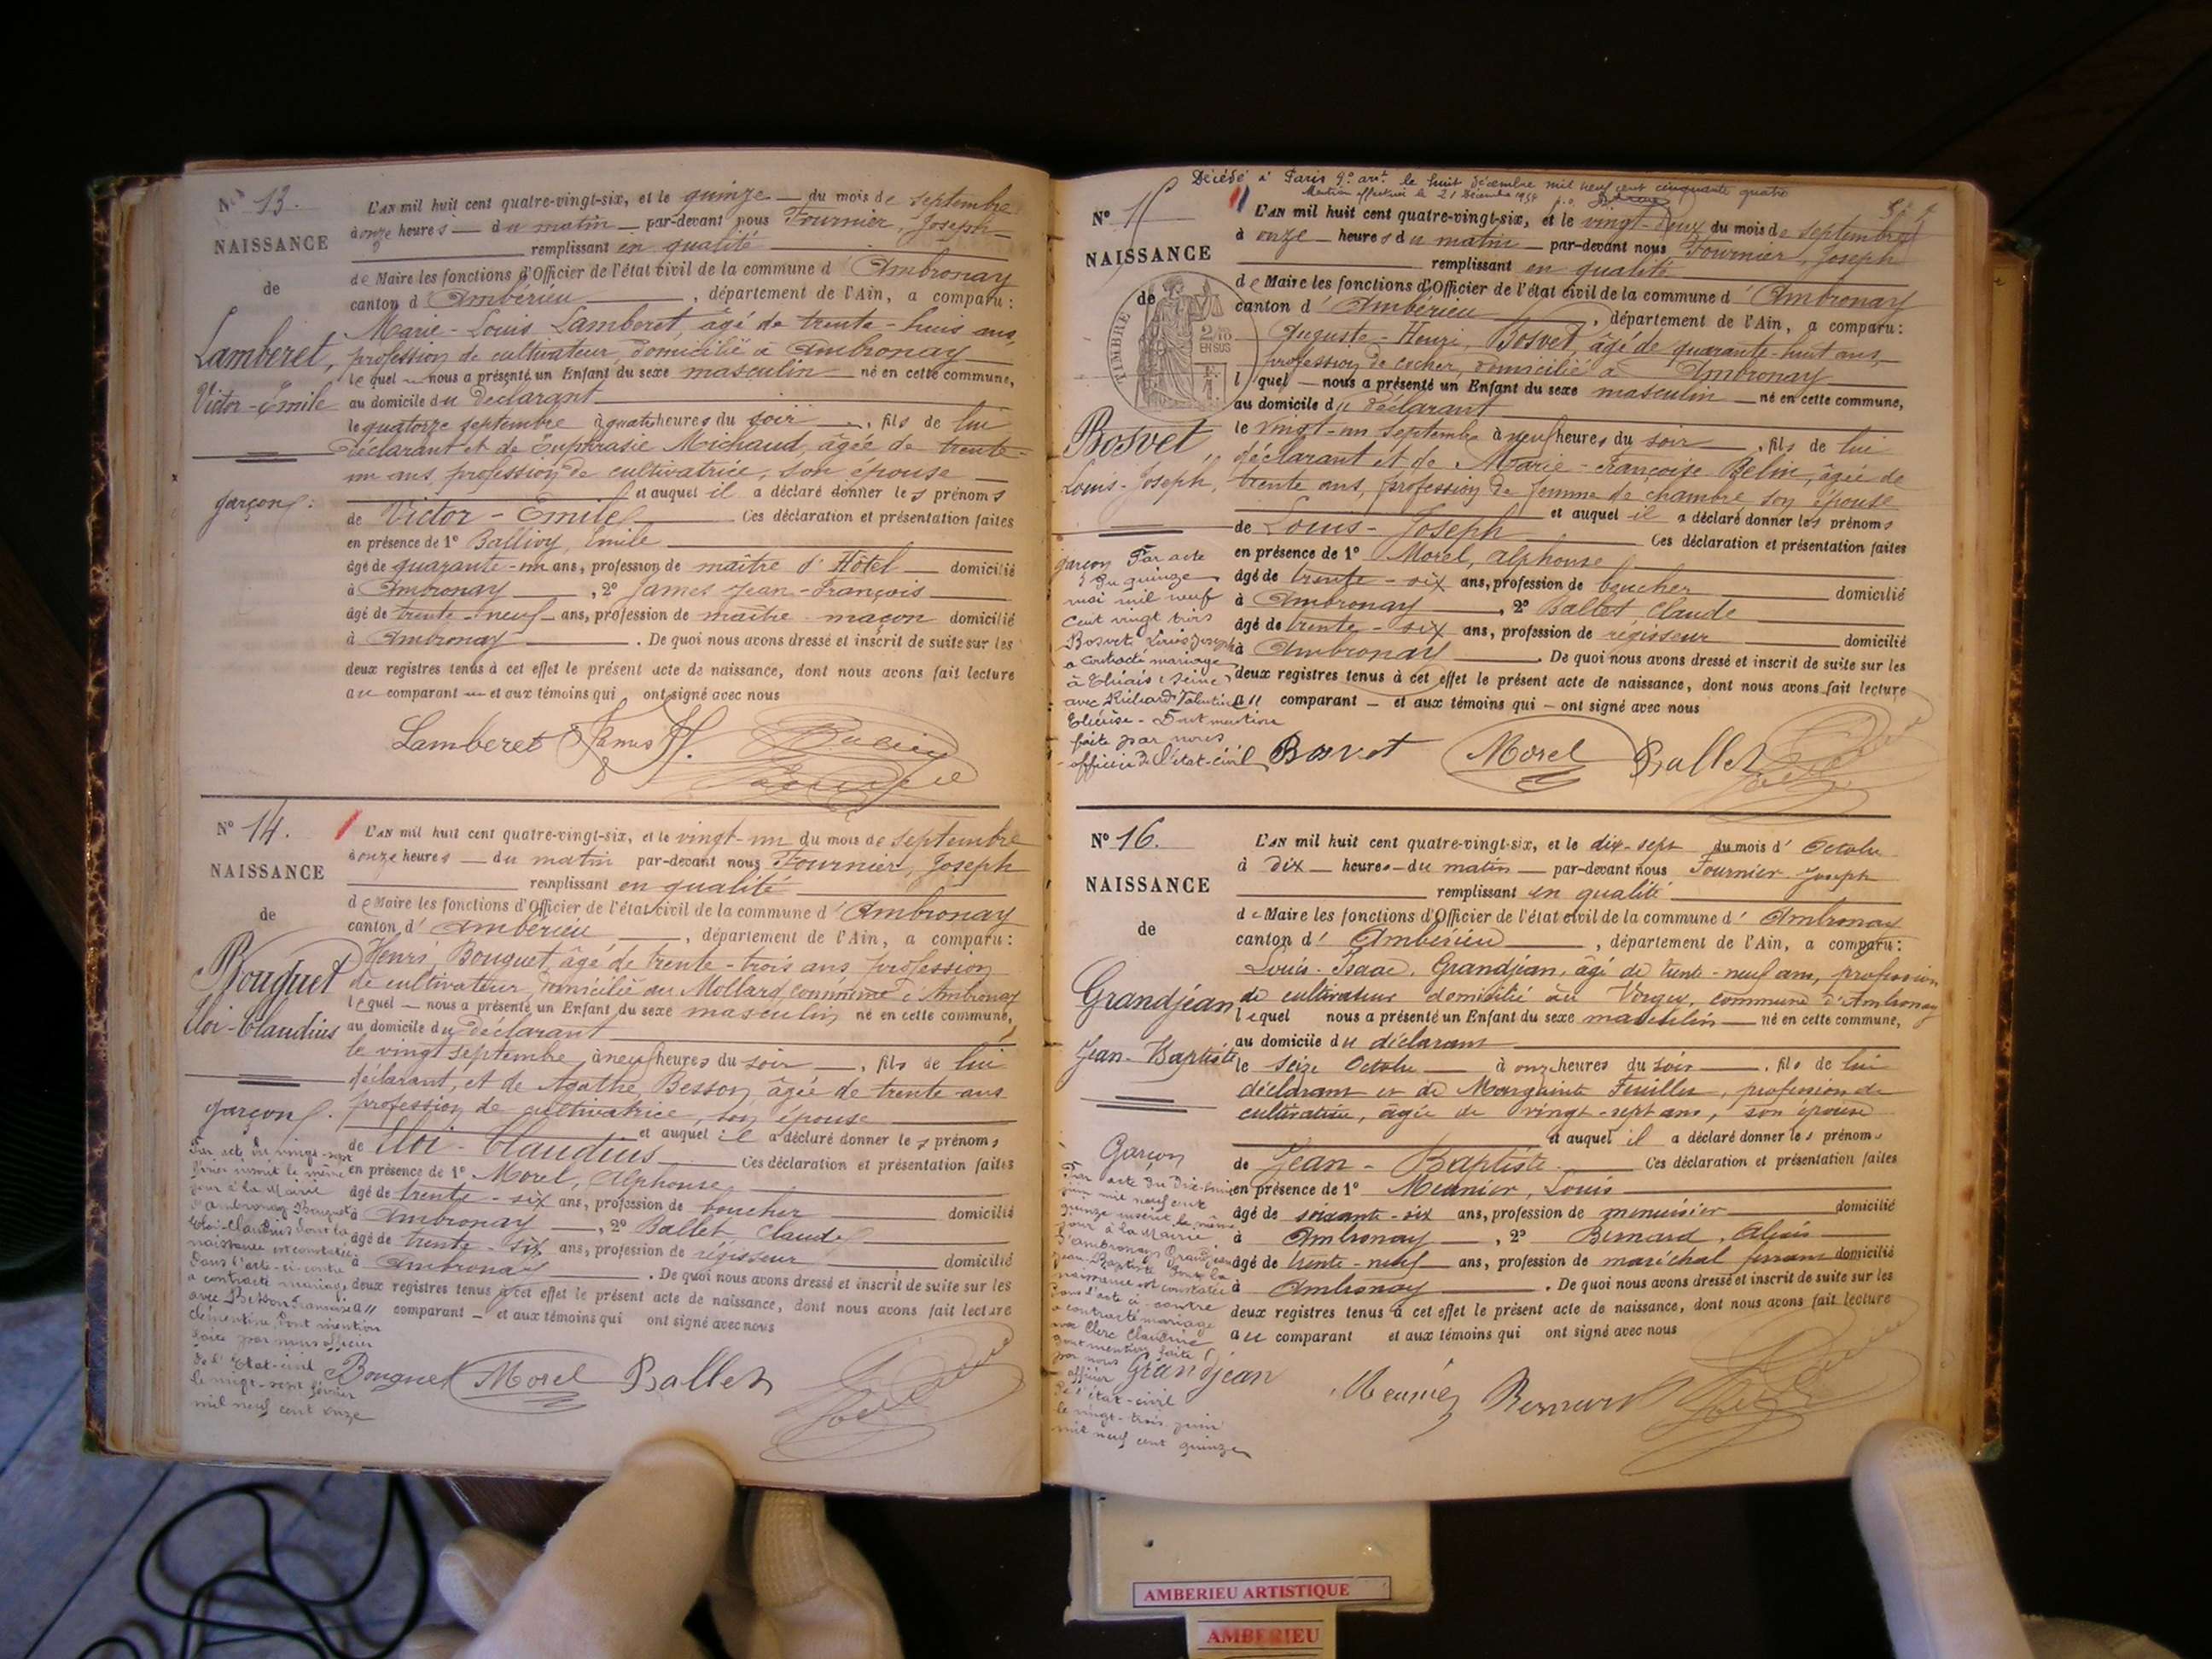 N° 13.
NAISSANCE
de
Lamberet,
Victor-Emile
garçon.
L'AN mil huit cent quatre-vingt-six, et le quinze du mois de septembre
à onze heures du matin par-devant nous Fournier, Joseph
remplissant en qualité
de Maire les fonctions d'Officier de l'état civil de la commune d'Ambronay
canton d'Ambérieu, département de l'Ain, a comparu :
Marie-Louis Lamberet, âgé de trente-huit ans,
profession de cultivateur, domicilié à Ambronay
lequel nous a présenté un Enfant du sexe masculin né en cette commune,
au domicile du déclarant
le quatorze septembre à quatre heures du soir, fils de lui
déclarant et de Euphrasie Michaud, âgée de trente-
un ans, profession de cultivatrice, son épouse
et auquel il a déclaré donner les prénoms
de Victor-Emile Ces déclaration et présentation faites
en présence de 1° Ballivy, Emile
âgé de quarante-un ans, profession de maître d'Hôtel domicilié
à Ambronay, 2° James Jean-François
âgé de trente-neuf ans, profession de maître maçon domicilié
à Ambronay. De quoi nous avons dressé et inscrit de suite sur les
deux registres tenus à cet effet le présent acte de naissance, dont nous avons fait lecture
au comparant et aux témoins qui ont signé avec nous
Lamberet James
N° 14.
NAISSANCE
de
Bouguet
Eloi-Claudius
garçon.
L'AN mil huit cent quatre-vingt-six, et le vingt-un du mois de septembre
à onze heures du matin par-devant nous Fournier, Joseph
remplissant en qualité
de Maire les fonctions d'Officier de l'état civil de la commune d'Ambronay
canton d'Ambérieu, département de l'Ain, a comparu :
Henri Bouguet, âgé de trente-trois ans, profession
de cultivateur, domicilié au Mollard, commune d'Ambronay
lequel nous a présenté un Enfant du sexe masculin né en cette commune,
au domicile du déclarant
le vingt septembre, à neuf heures du soir, fils de lui
déclarant, et de Agathe Besson, âgée de trente ans
profession de cultivatrice, son épouse
et auquel il a déclaré donner les prénoms
de Eloi-Claudius Ces déclaration et présentation faites
en présence de 1° Morel, Alphonse
âgé de trente-six ans, profession de boucher domicilié
à Ambronay, 2° Ballet Claude
âgé de trente-six ans, profession de régisseur domicilié
à Ambronay. De quoi nous avons dressé et inscrit de suite sur les
deux registres tenus à cet effet le présent acte de naissance, dont nous avons fait lecture
au comparant et aux témoins qui ont signé avec nous
Par acte du vingt-sept
février inscrit le même
jour à la Mairie
d'Ambronay Bouguet
Eloi-Claudius dont la
naissance est constatée
dans l'acte ci-contre
a contracté mariage
avec Besson Françoise
Clémentine, dont mention
faite par nous officier
de l'Etat-civil
le vingt-sept février
mil neuf cent onze
Bouguet Morel Ballet
Décédé à Paris 9° arrt. le huit décembre mil neuf cent cinquante quatre
Mention effectuée le 21 Décembre 1954
N° 15
NAISSANCE
de
TIMBRE
2/10 EN SUS
Bosvet,
Louis-Joseph,
garçon
L'AN mil huit cent quatre-vingt-six, et le vingt-deux du mois de septembre
à onze heures du matin par-devant nous Fournier, Joseph
remplissant en qualité
de Maire les fonctions d'Officier de l'état civil de la commune d'Ambronay
canton d'Ambérieu, département de l'Ain, a comparu :
Auguste-Henri, Bosvet, âgé de quarante-huit ans,
profession de cocher, domicilié à Ambronay
lquel nous a présenté un Enfant du sexe masculin né en cette commune,
au domicile du déclarant
le vingt-un septembre à neuf heures du soir, fils de lui
déclarant et de Marie-Françoise Belin, âgée de
trente ans, profession de femme de chambre, son épouse
et auquel il a déclaré donner les prénoms
de Louis-Joseph Ces déclaration et présentation faites
en présence de 1° Morel, Alphonse
âgé de trente-six ans, profession de boucher domicilié
à Ambronay, 2° Ballet, Claude
âgé de trente-six ans, profession de régisseur domicilié
à Ambronay. De quoi nous avons dressé et inscrit de suite sur les
deux registres tenus à cet effet le présent acte de naissance, dont nous avons fait lecture
au comparant et aux témoins qui ont signé avec nous
Par acte
du quinze
mai mil neuf
cent vingt trois
Bosvet Louis Joseph
a contracté mariage
à Thiais (Seine)
avec Richard Valentine
Dont mention
faite par nous
officier de l'état-civil
Bosvet Morel Ballet
N° 16.
NAISSANCE
de
Grandjean
Jean-Baptiste
Garçon
L'AN mil huit cent quatre-vingt-six, et le dix-sept du mois d'Octobre
à dix heures du matin par-devant nous Fournier Joseph
remplissant en qualité
de Maire les fonctions d'Officier de l'état civil de la commune d'Ambronay
canton d'Ambérieu, département de l'Ain, a comparu :
Louis-Isaac, Grandjean, âgé de trente-neuf ans, profession
de cultivateur domicilié au commune d'Ambronay
lequel nous a présenté un Enfant du sexe masculin né en cette commune,
au domicile du déclarant
le seize Octobre à onze heures du soir, fils de lui
déclarant et de Marguerite Feuillet, profession de
cultivatrice, âgée de vingt-sept ans, son épouse
et auquel il a déclaré donner les prénoms
de Jean-Baptiste. Ces déclaration et présentation faites
en présence de 1° Meunier, Louis
âgé de soixante-six ans, profession de menuisier domicilié
à Ambronay, 2° Bernard, Alexis
âgé de trente-neuf ans, profession de maréchal ferrant domicilié
à Ambronay. De quoi nous avons dressé et inscrit de suite sur les
deux registres tenus à cet effet le présent acte de naissance, dont nous avons fait lecture
au comparant et aux témoins qui ont signé avec nous
Par acte du
juin mil neuf cent
quinze inscrit le même
jour à la Mairie
d'Ambronay Grandjean
Jean-Baptiste dont la
naissance est constatée
dans l'acte ci-contre
a contracté mariage
avec Clerc Claudine
dont mention faite
par nous
officier
de l'état-civil
le vingt-trois juin
mil neuf cent quinze
Grandjean Meunier Bernard
AMBERIEU ARTISTIQUE
AMBERIEU